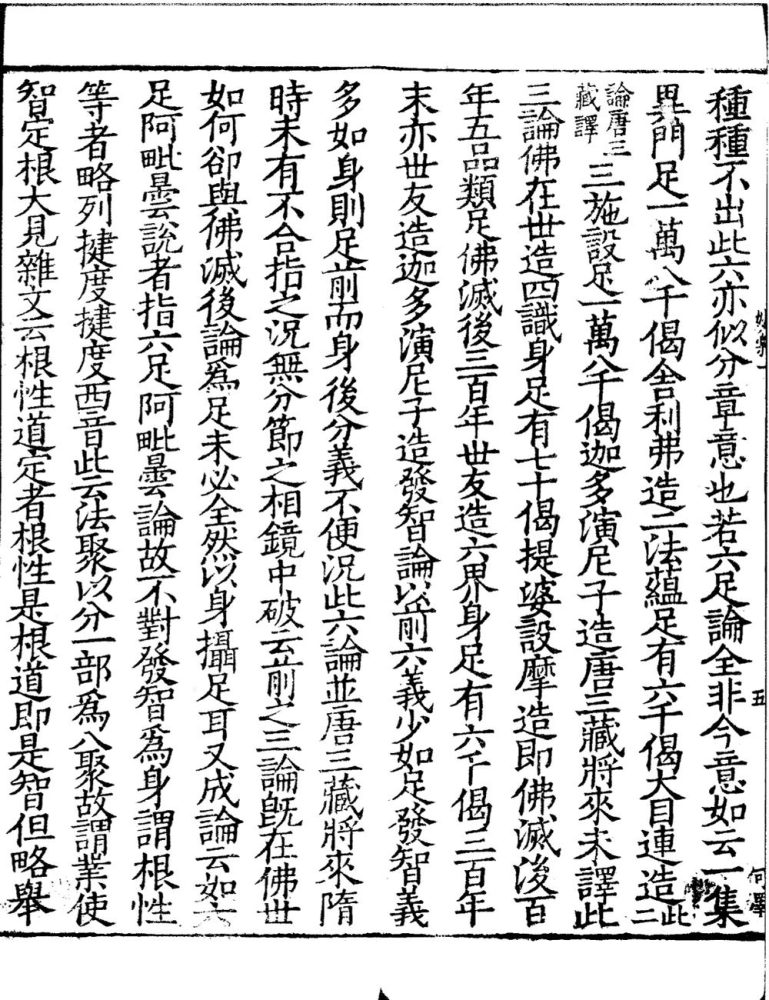 種種不出此六亦似分章意也若六足論全非今意如云一集
異門足一萬八千偈舍利弗造二法蘊足有六千偈大目連造此二
論唐三藏譯三施設足一萬八千偈迦多演尼子造唐三藏將來未譯此
三論佛在世造四識身足有七十偈提婆設摩造即佛滅後百
年五品類足佛滅後三百年世友造六界身足有六千偈三百年
末亦世友造迦多演尼子造發智論以前六義少如足發智義
多如身則足前而身後分義不便況此六論並唐三藏將來隋
時未有不合指之況無分節之相鏡中破云前之三論既在佛世
如何卻與佛滅後論為足未必全然以身攝足耳又成論云如六
足阿毗曇說者指六足阿毗曇論故不對發智為身謂根性
等者略列揵度揵度西音此云法聚以分一部為八聚故謂業使
智定根大見雜文云根性道定者根性是根道即是智但略舉
五
何澤